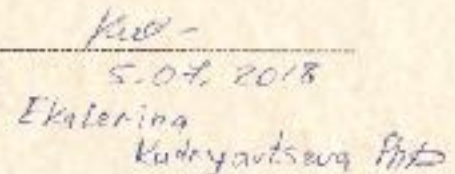 5.07.2018
Ekaterina
Kudryavtseva PhD